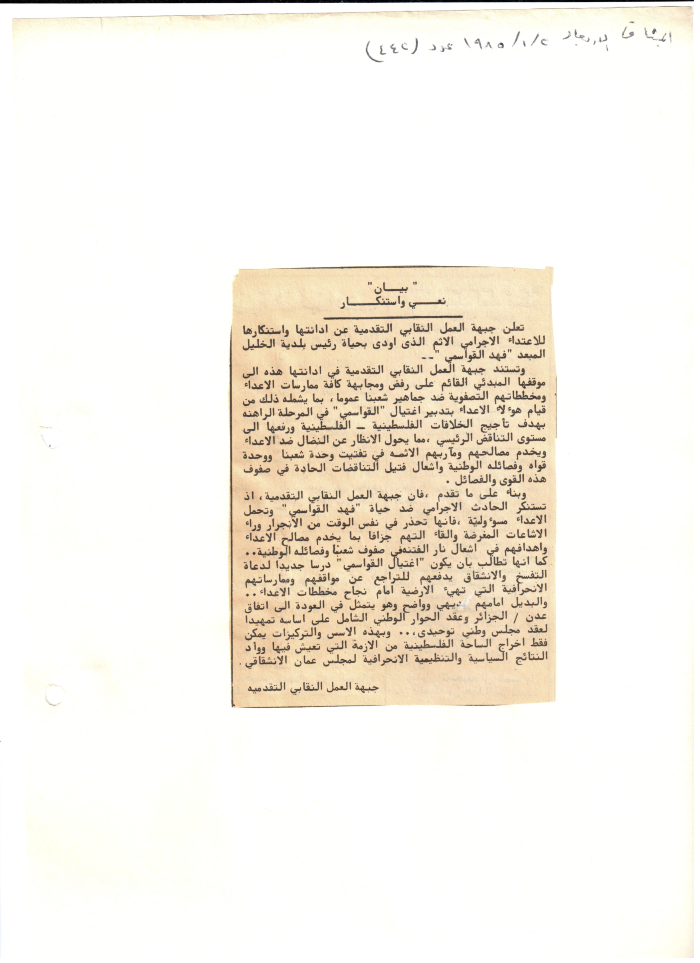 الميثاق الاربعاء ١٩٨٥/١/٢ عدد (٤٤٢)
" بيـــان"
نعــي واستنكـــار
تعلن جبهة العمل النقابي التقدمية عن ادانتها واستنكارها
للاعتداء الاجرامي الاثم الذى اودى بحياة رئيس بلدية الخليل
المبعد "فهد القواسمي "ــ
وتستند جبهة العمل النقابي التقدمية في ادانتها هذه الى
موقفها المبدئي القائم على رفض ومجابهة كافة ممارسات الاعداء
ومخططاتهم التصفوية ضد جماهير شعبنا عموما، بما يشمله ذلك من
قيام هوءلاء الاعداء بتدبير اغتيال "القواسمي" في المرحلة الراهنه
بهدف تأجيج الخلافات الفلسطينية ــ الفلسطينية ورفعها الى
مستوى التناقض الرئيسي ،مما يحول الانظار عن النضال ضد الاعداء
ويخدم مصالحهم ومآربهم الاثمه في تفتيت وحدة شعبنا ووحدة
قواه وفصائله الوطنية واشعال فتيل التناقضات الحادة في صفوف
هذه القوى والفصائل .
وبناء على ما تقدم ،فان جبهة العمل النقابي التقدمية، اذ
تستنكر الحادث الاجرامي ضد حياة "فهد القواسمي" وتحمل
الاعداء مسوءولية ،فانها تحذر في نفس الوقت من الانجرار وراء
الاشاعات المغرضة والقاء التهم جزافا بما يخدم مصالح الاعداء
واهدافهم في اشعال نار الفتنهفي صفوف شعبنا وفصائله الوطنية..
كما انها تطالب بان يكون "اغتيال القواسمي" درسا جديدا لدعاة
التفسخ والانشقاق يدفعهم للتراجع عن مواقفهم وممارساتهم
الانحرافية التي تهيء الارضية امام نجاح مخططات الاعداء..
والبديل امامهم بديهي وواضح وهو يتمثل في العودة الى اتفاق
عدن / الجزائر وعقد الحوار الوطني الشامل على اساسه تمهيدا
لعقد مجلس وطني توحيدى،.. وبهذه الاسس والتركيزات يمكن
فقط اخراج الساحة الفلسطينية من الازمة التي تعيش فيها وواد
النتائج السياسية والتنظيمية الانحرافية لمجلس عمان الانشقاقي .
جبهة العمل النقابي التقدميه